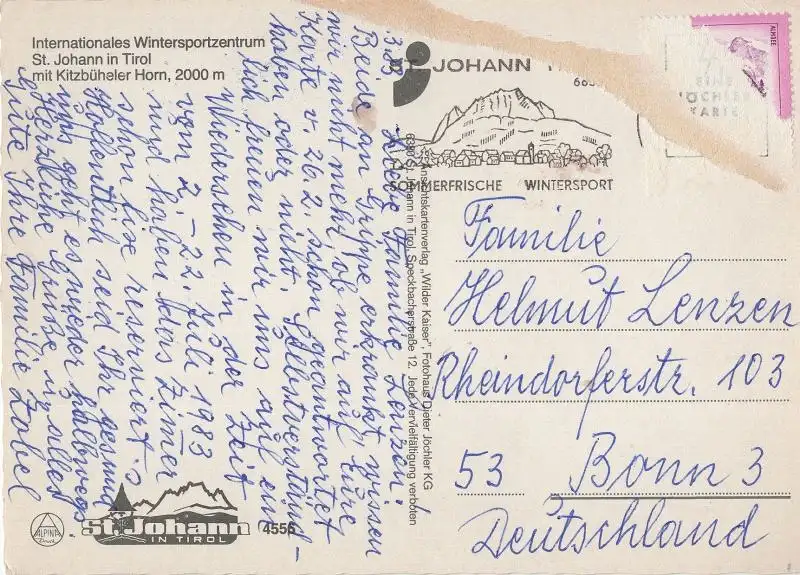 Internationales Wintersportzentrum
St. Johann in Tirol
mit Kitzbüheler Horn, 2000 m
3.83 Liebe Familie Lenzen!
Beide an Grippe erkrankt wissen
wir nicht mehr, ob wir auf Eure
Karte v. 26.2. schon geantwortet
haben oder nicht. Selbstverständ-
lich freuen wir uns auf ein
Wiedersehen in der Zeit
vom 2.-22. Juli 1983
und haben das Zimmer
schon fixe reserviert.
Hoffentlich seid Ihr gesund
uns geht es wieder halbwegs.
Herzliche Grüße u. alles
Gute Ihre Familie Zobel
Ansichtskartenverlag „Wilder Kaiser", Fotohaus Dieter Jöchler KG
6380 St. Johann in Tirol, Speckbacherstraße 12. Jede Vervielfältigung verboten
ST. JOHANN
SOMMERFRISCHE WINTERSPORT
ALMSEE
EINE
JÖCHLER
KARTE
Familie
Helmut Lenzen
Rheindorferstr. 103
53 Bonn 3
Deutschland
ALPINA
Druck
St. Johann
IN TIROL
4556